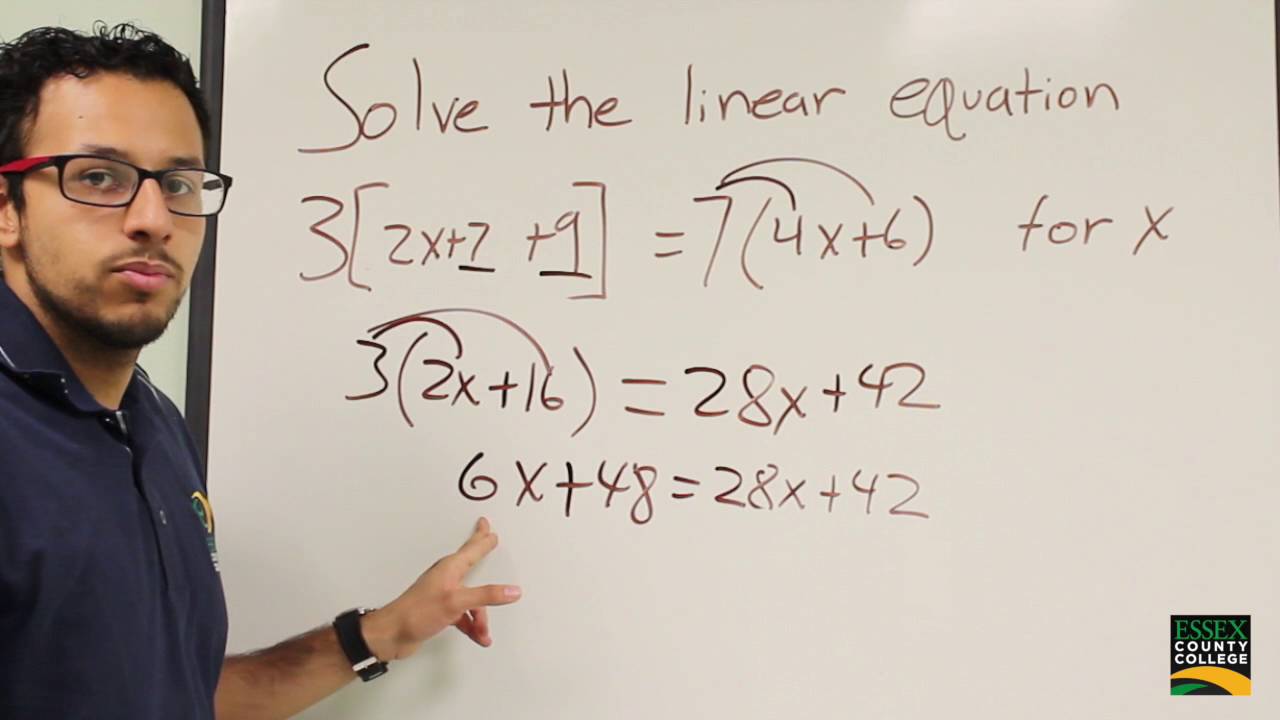 Solve the linear equation
3[2x+7 +9] = 7(4x+6) for x
3(2x+16) = 28x+42
6x+48=28x+42
ESSEX
COUNTY
COLLEGE